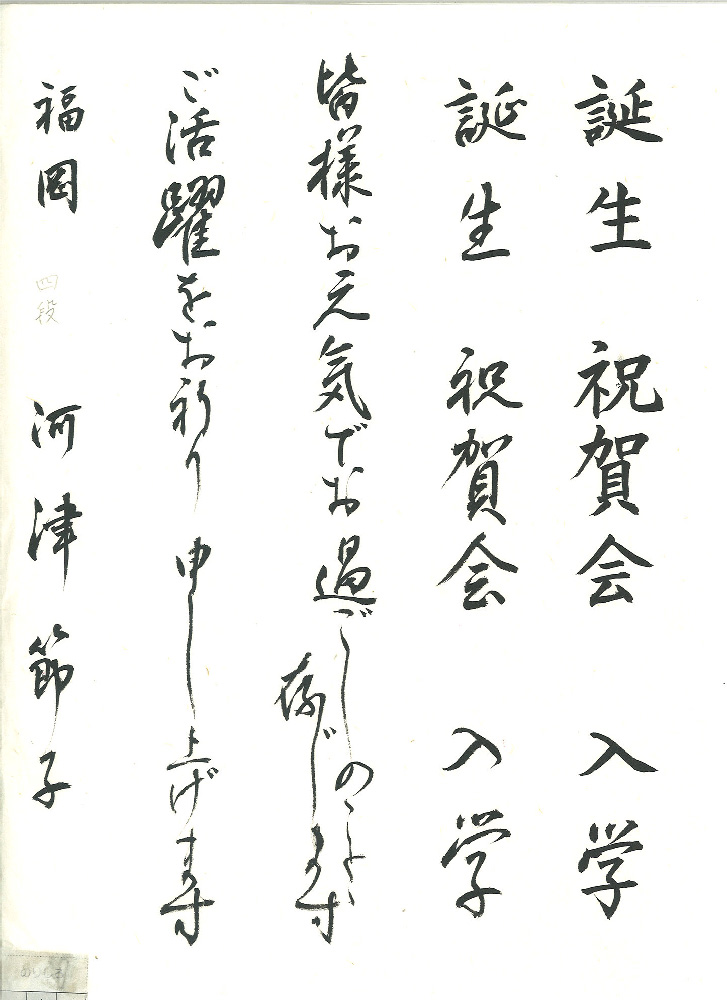 誕生 祝賀会 入学
誕生 祝賀会 入学
皆様お元気でお過ごしのことと
存じます
ご活躍をお祈り申し上げます
福岡 四段 河津節子